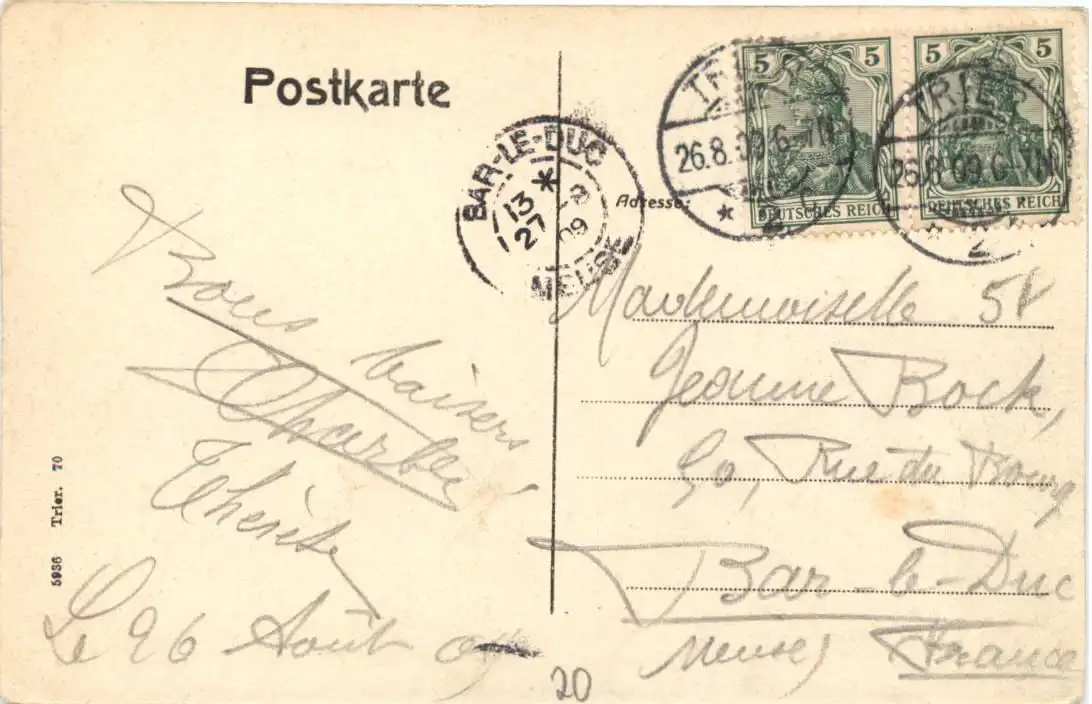 Postkarte
BAR-LE-DUC
13
27 -8
09
MEUSE
TRIER
26.8.09.6-7N
* 2
TRIER
26.8.09.6-7N
* 2
5 5
DEUTSCHES REICH
5 5
DEUTSCHES REICH
Adresse:
Mademoiselle
Jeanne Bock,
Rue du Bourg
Bar-le-Duc
(Meuse) France
Bons baisers
Thérèse
Le 26 Août 09
5936 Trier. 70
20